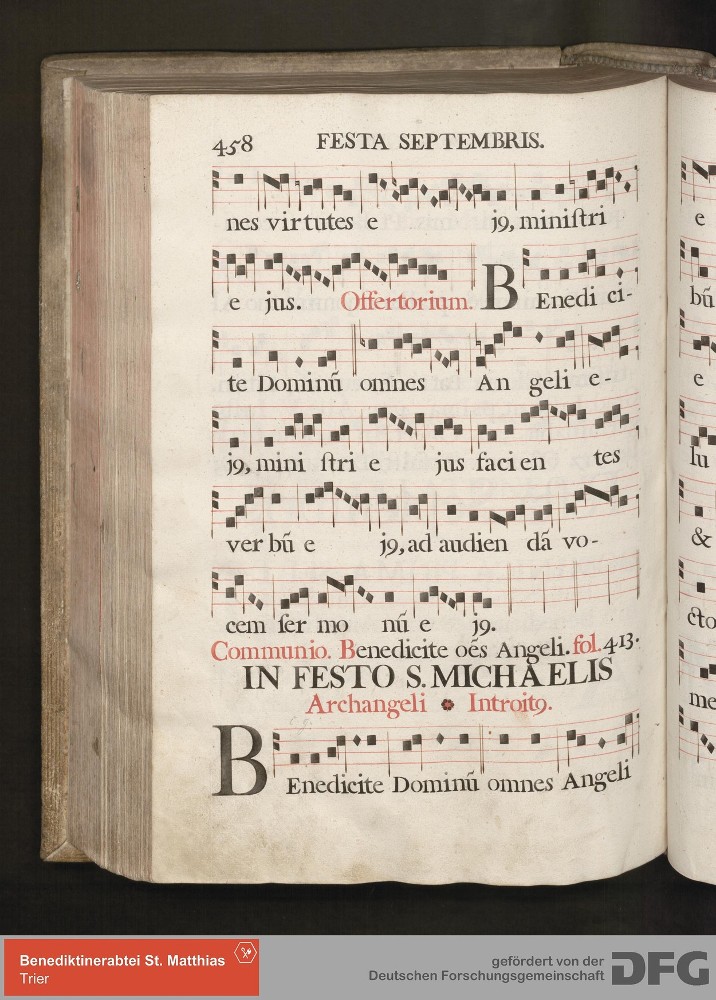 458 FESTA SEPTEMBRIS.
nes virtutes e j9, miniſtri
e jus. Offertorium. BEnedi ci-
te Dominũ omnes An geli e-
j9, mini ſtri e jus faci en tes
ver bũ e j9, ad audien dã vo-
cem ſer mo nũ e j9.
Communio. Benedicite oẽs Angeli. fol. 413.
IN FESTO S. MICHAELIS
Archangeli Introit9.
BEnedicite Dominũ omnes Angeli
e
bũ
e
lu
&
cto
me
Benediktinerabtei St. Matthias
Trier
gefördert von der
Deutschen Forschungsgemeinschaft DFG